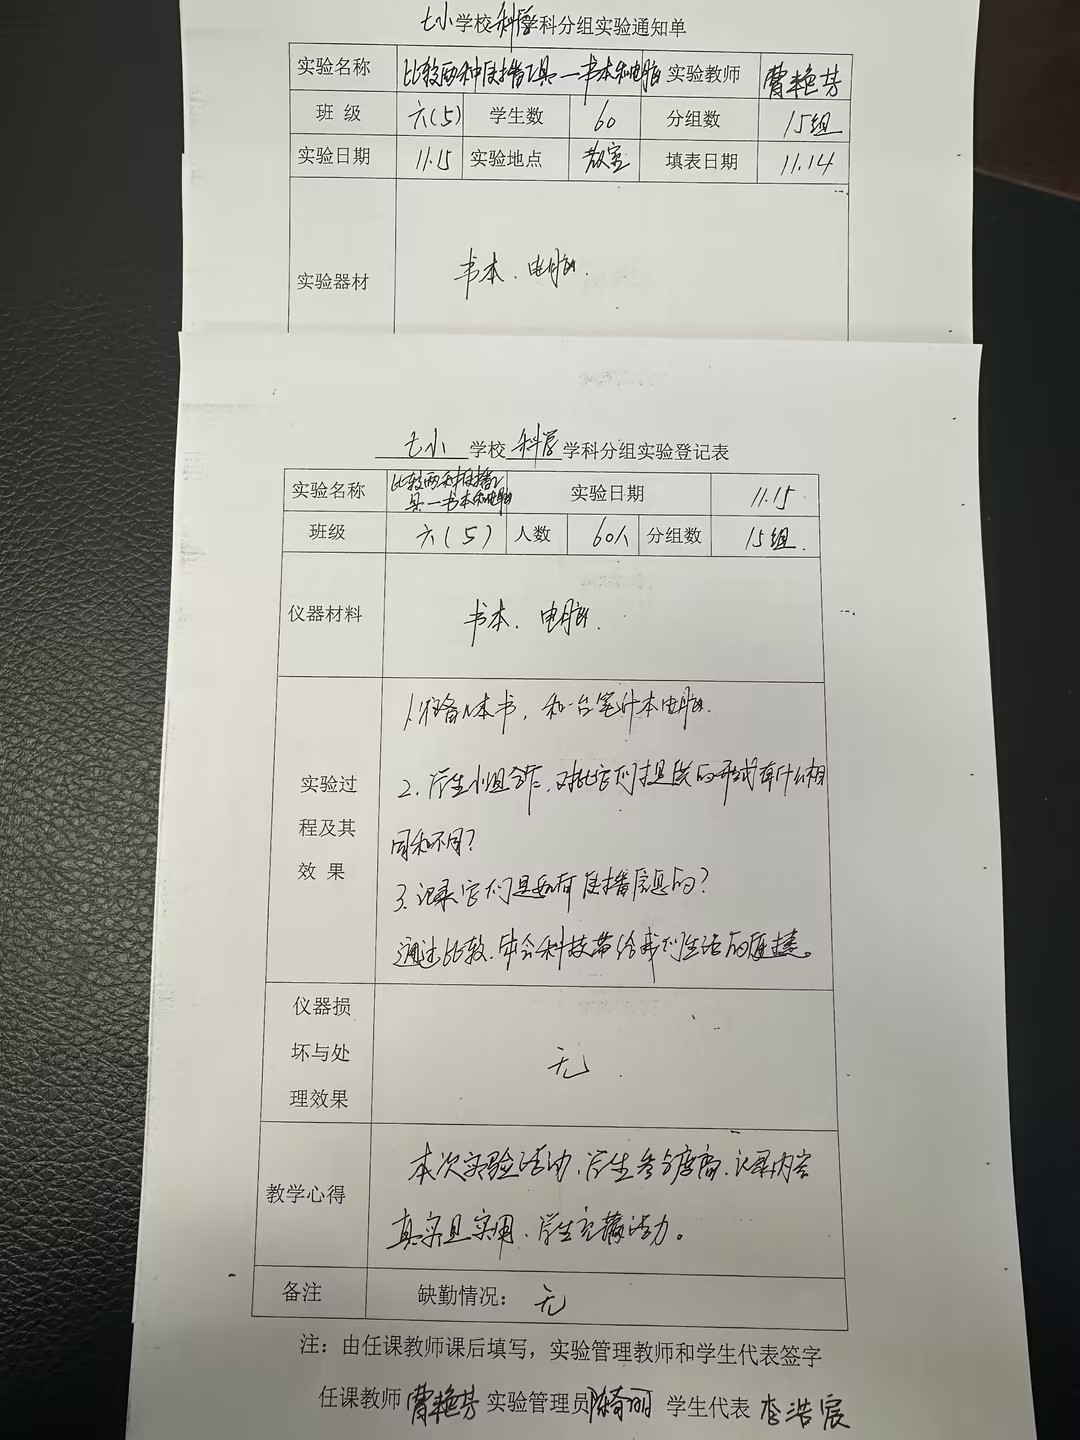 七小学校科学学科分组实验通知单
实验名称 比较两种传播工具—书本和电脑 实验教师 曹艳芬
班 级 六(5) 学生数 60 分组数 15组
实验日期 11.15 实验地点 教室 填表日期 11.14
实验器材 书本、电脑.
七小 学校 科学 学科分组实验登记表
实验名称 比较两种传播工具—书本和电脑 实验日期 11.15
班级 六(5) 人数 60人 分组数 15组.
仪器材料 书本、电脑.
实验过程及其效果
1.准备几本书,和一台笔记本电脑.
2.学生小组合作,对比它们提供的形式有什么相
同和不同?
3.记录它们是如何传播信息的?
通过比较,体会科技带给我们生活的便捷。
仪器损坏与处理效果 无
教学心得 本次实验活动,学生参与度高,记录内容
真实且实用,学生充满活力。
备注 缺勤情况: 无
注:由任课教师课后填写,实验管理教师和学生代表签字
任课教师 曹艳芬 实验管理员 陈奇丽 学生代表 李浩宸